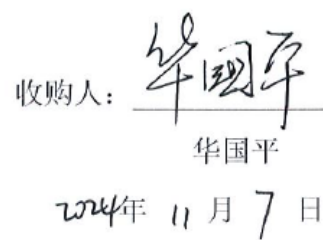 收购人：华国平
华国平
2024年 11 月 7 日